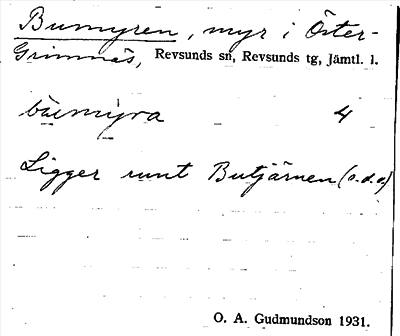 Bumyren, myr i Öster-
Grimnäs, Revsunds sn, Revsunds tg, Jämtl. l.
4
Ligger runt Butjärnen (s.d.o)
O. A. Gudmundson 1931.